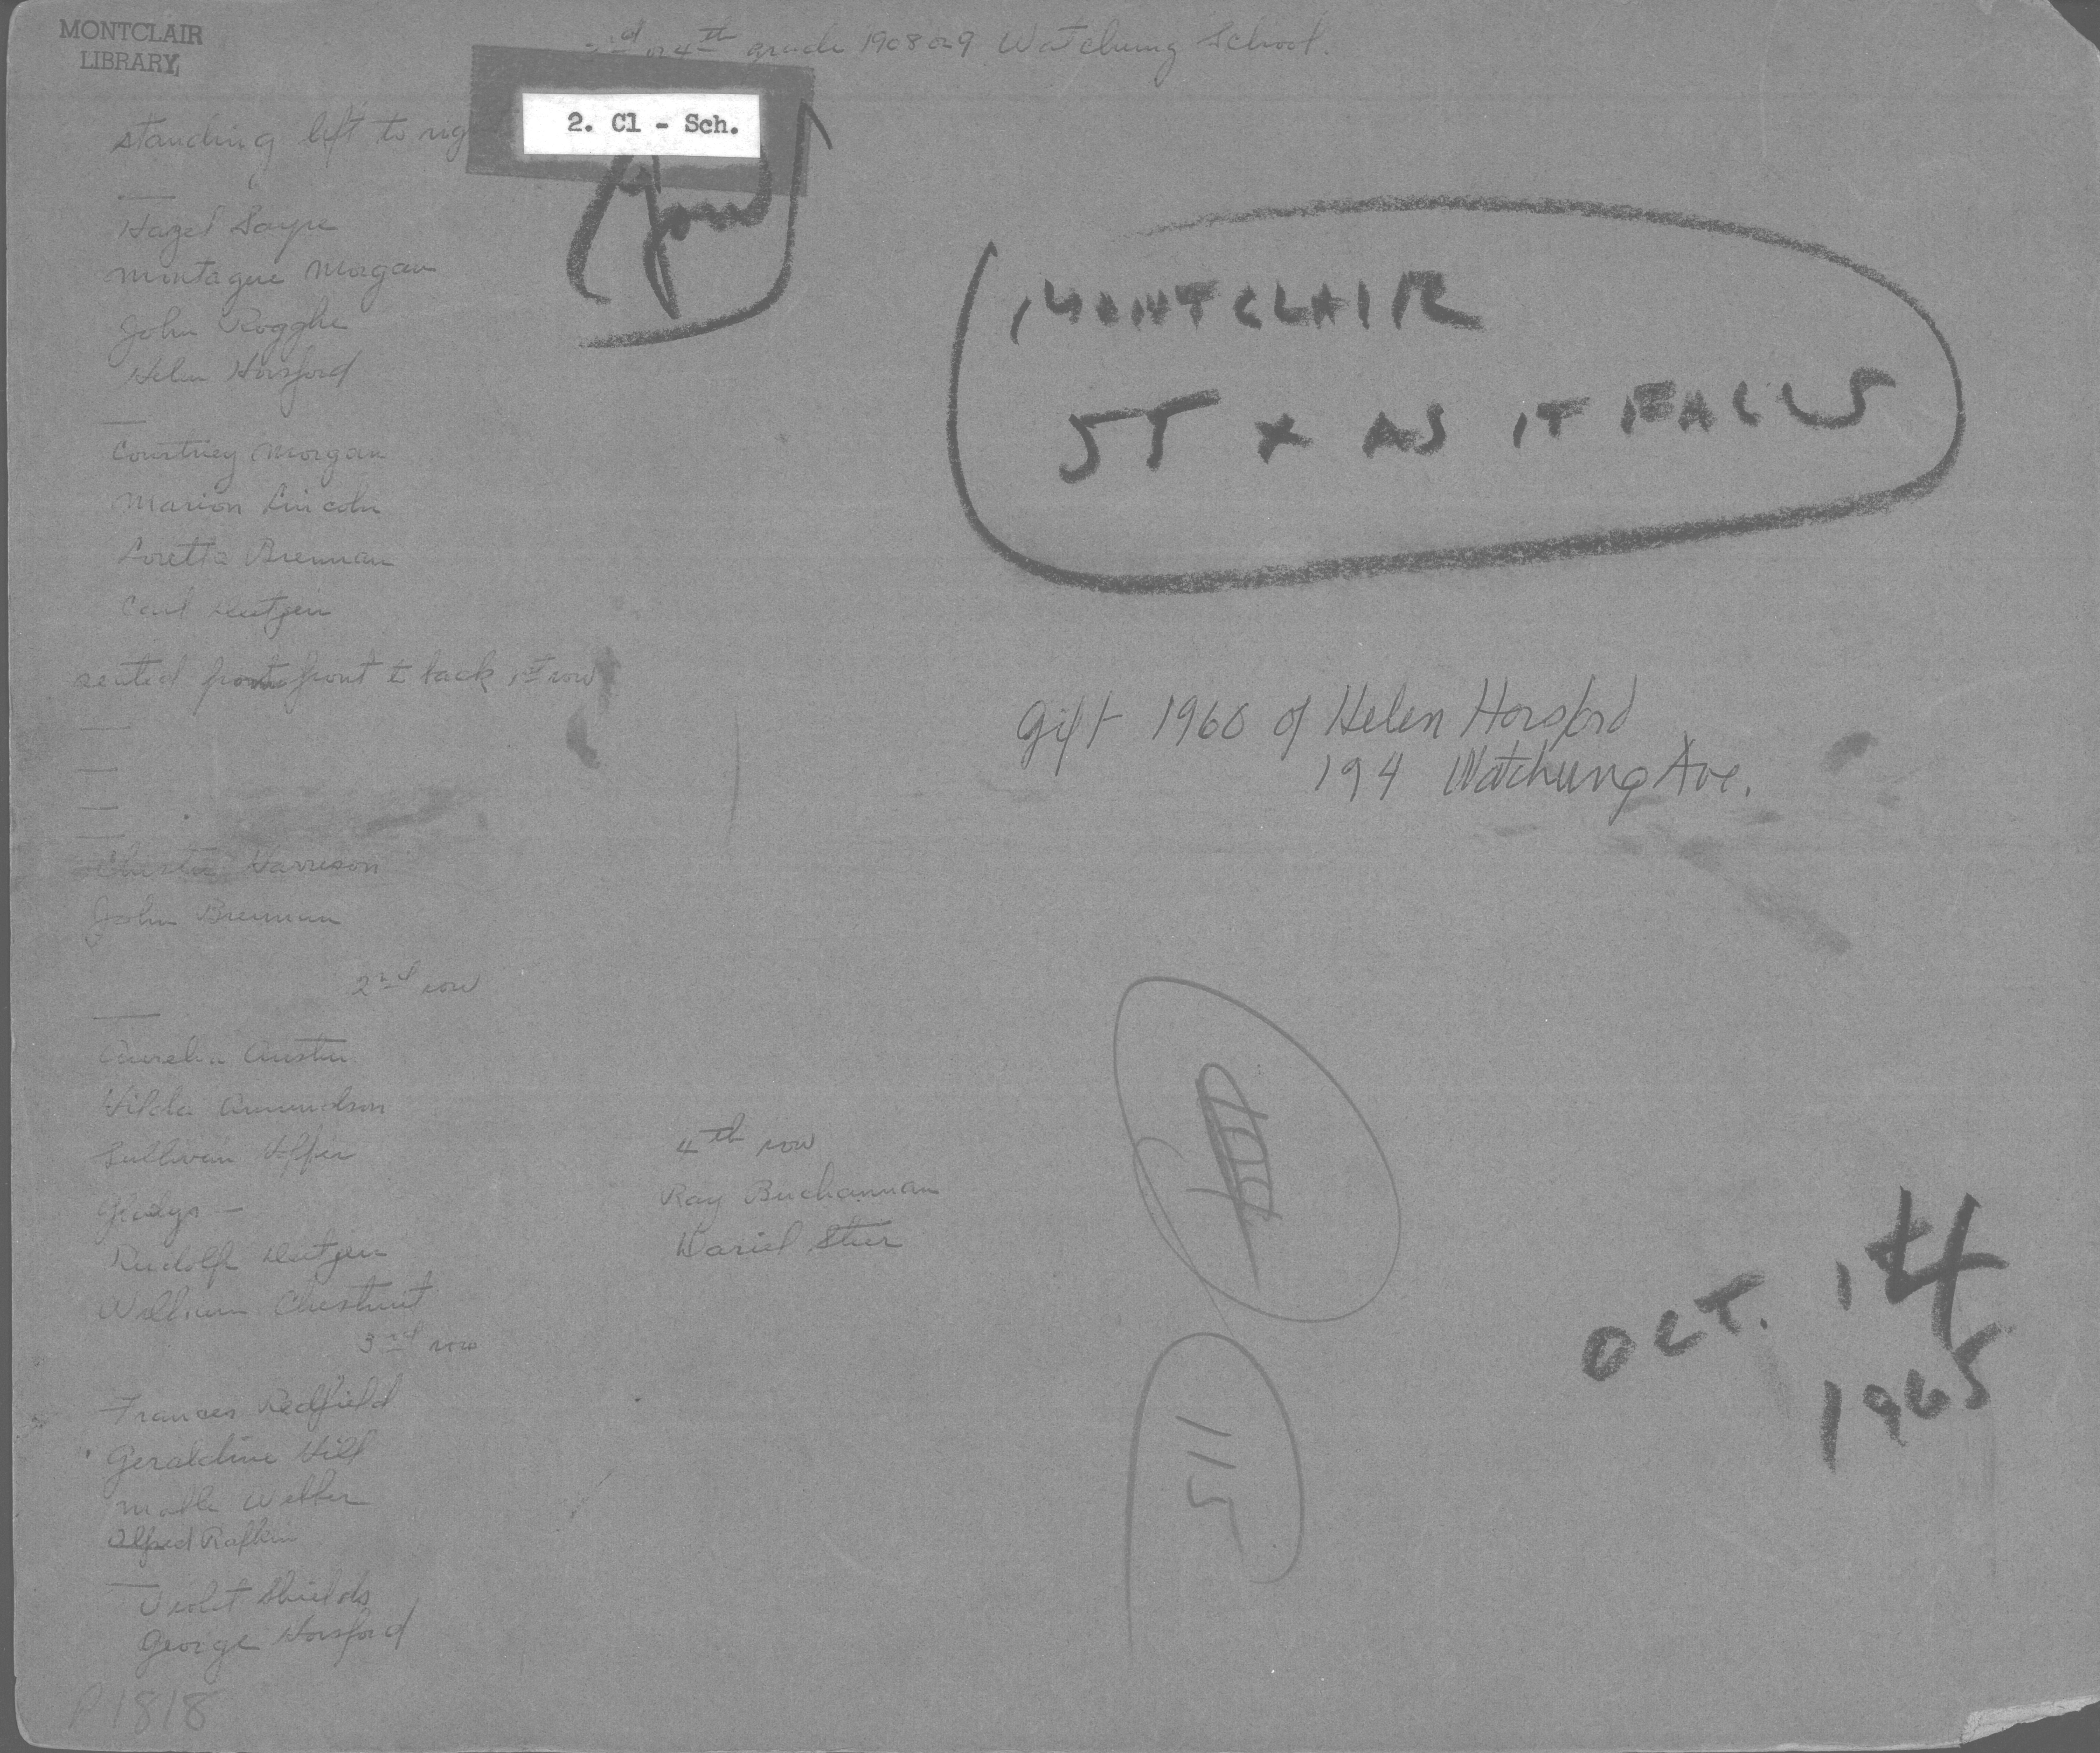 MONTCLAIR
LIBRARY
3rd or 4th grade 1908 or 9 Watchung School.
2. Cl - Sch.
standing left to
—
Hazel Sayre
Montague Morgan
John Rogghe
Helen Horsford
—
Courtney Morgan
Marion Lincoln
Loretta Brennan
Carl Dutjen
seated front to back 1st row
—
—
—
—
Chester Harrison
John Brennan
2nd row
—
Aurelia Austin
Hilda Amundson
Sullivan
Gladys —
Rudolf Dutjen
William Chestnut
3rd row
Frances Redfield
Geraldine Hill
Webber
Alfred Rafkin
—
Violet Shields
George Horsford
P1818
4th row
Ray Buchannan
MONTCLAIR
5T X AS IT FALLS
Gift 1960 of Helen Horsford
194 Watchung Ave.
511
OCT. 14
1965